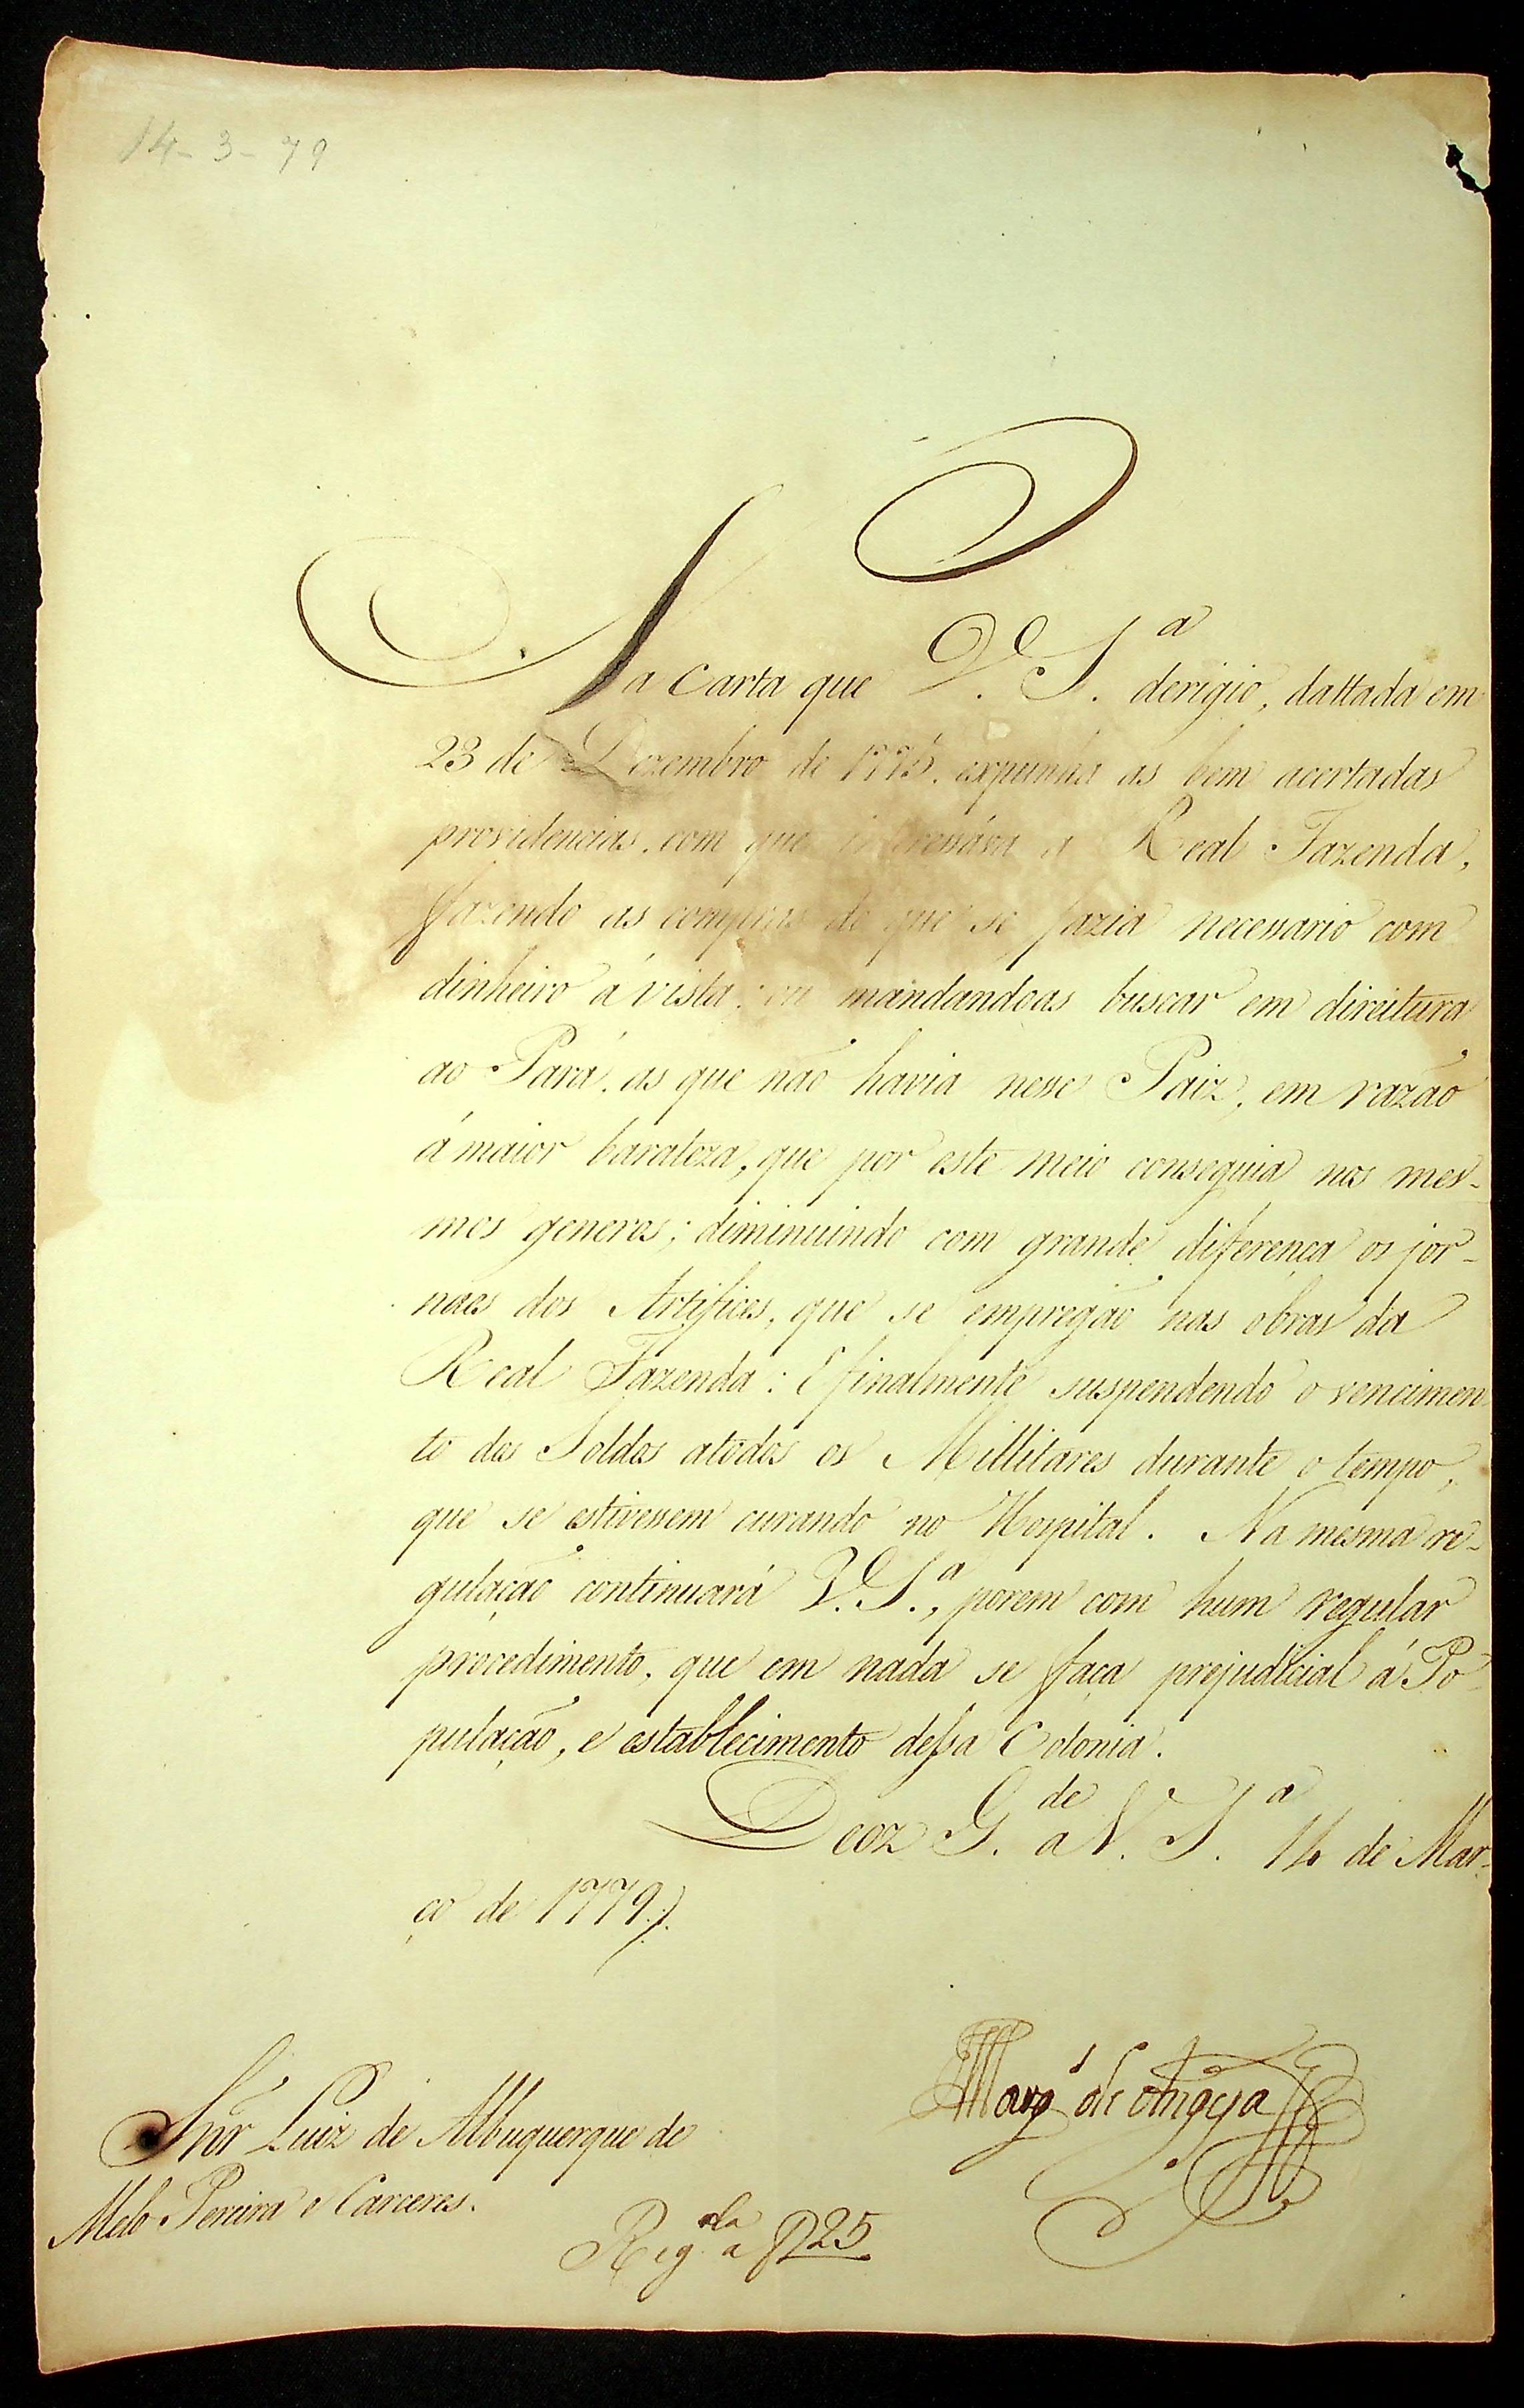 14-3-79
Na Carta que V. S.ª derigio, dattada em
23 de Dezembro de expunha as bem acertadas
providencias, com que interessáva a Real Fazenda,
fazendo as compras do que se fazia necessario com
dinheiro á vista: ou mandandoas buscar em direitura
ao Pará, as que não havia nesse Paiz, em razão
á maior barateza, que por este meio conseguia nos mes-
mos generos; diminuindo com grande diferença os jor-
naes dos Artifices, que se empregão nas obras da
Real Fazenda: E finalmente suspendendo o vencimen
to dos Soldos atodos os Millitares durante o tempo,
que se estivessem curando no Hospital. Na mesma re-
gulação continuará V. S.ª, porem com hum regular
procedimento, que em nada se faça prejudicial á Po-
pulação, e establecimento dessa Colonia.
Deoz G.de a V. S.ª 14 de Mar-
ço de 1779.
Marq. de Angeja
Snr Luiz de Albuquerque de
Mello Pereira e Carceres.
Reg.da a f 25